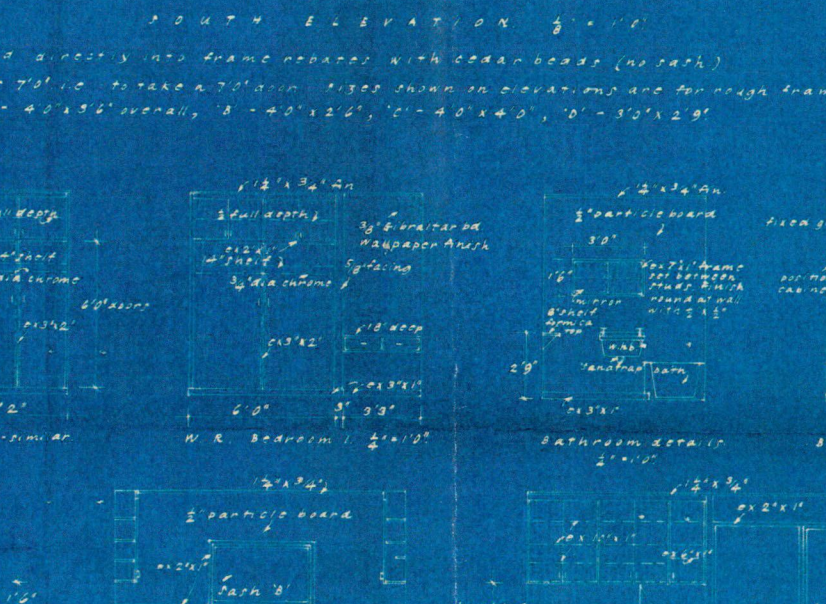 SOUTH ELEVATION 1/8" = 1'0"
directly into frame rebates with cedar beads (no sash)
7'0" i.e. to take a 7'0" door. Sizes shown on elevations are for rough fram
- 4'0" x 3'6" overall, 'B' - 4'0" x 2'6", 'C' - 4'0" x 4'0", 'D' - 3'0" x 2'9"
full depth
4" shelf
dia chrome
6'0" doors
ex 3"x2"
2"
-similar
1 1/4" x 3/4" fin.
1/2 full depth
ex 2"x1"
14" shelf
3/4" dia chrome
ex 3"x2"
3/8" Gibraltar bd
wallpaper finish
5/8" facing
18" deep
ex 3"x1"
6'0"
3"
3'3"
W.R. Bedroom 1. 1/4" = 1'0"
1 1/4" x 3/4" fin.
1/2" particle board
3'0"
1'6"
mirror
6" shelf
formica
top
frame
set between
studs. finish
round at wall
with 1/2 x 1/2"
w.h.b.
bath
2'9"
ex 3"x1"
Bathroom details.
1/2" = 1'0"
fixed g
cabine
B
1 1/4" x 3/4"
1/2" particle board
ex 2"x1"
sash 'B'
1'6"
1 1/4" x 3/4"
ex 10"x1"
ex 2"x1"